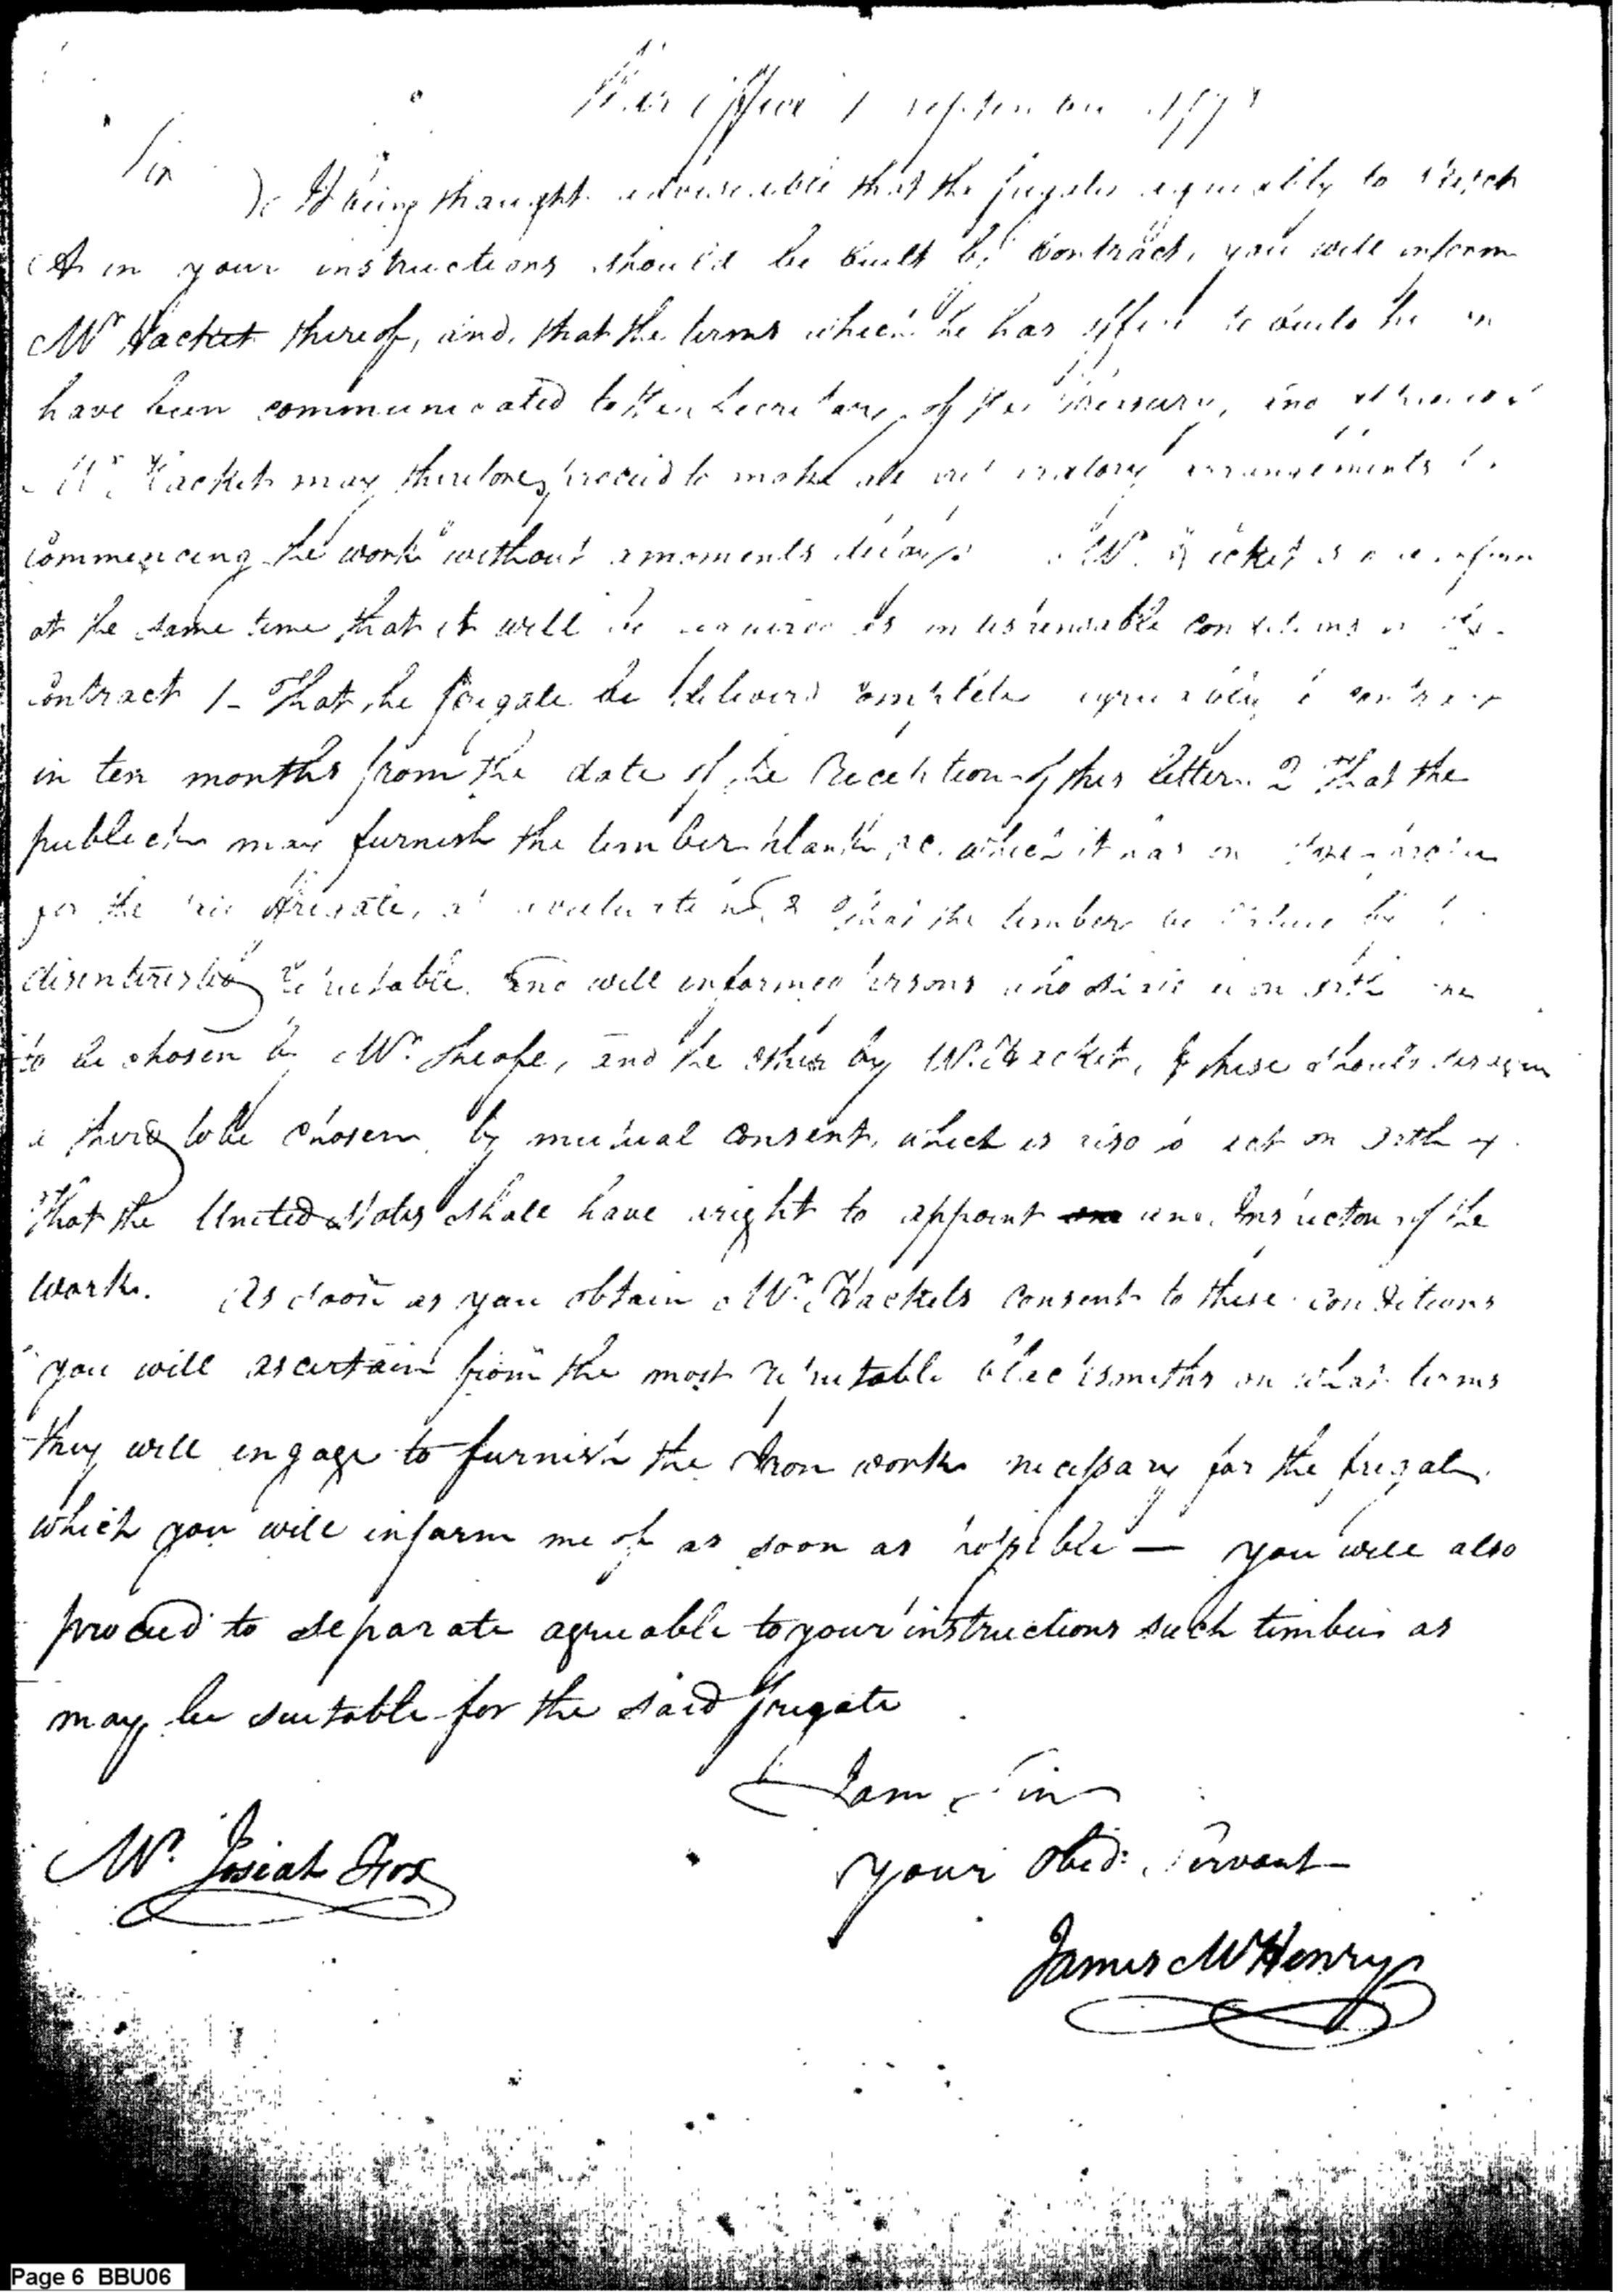 War Office 1 September 179
Sir
It being thought adviseable that the frigate agreeably to sketch
A in your instructions should be built by Contract, you will inform
Mr Hacket thereof, and, that the terms which he has offered to build her on
have been communicated to the Secretary of the Treasury, and
Mr Hacket may therefore, proceed to make all preparatory arrangements to
commencing the work without a moments delay. Mr. Hacket is
at the same time that it will be required as indispensable conditions
Contract 1 - That the frigate be delivered complete agreeably to contract
in ten months from the date of the Reception of this letter. 2 That the
publick may furnish the timber plank, &c. which it has on
for the frigate, at valuation, 3 That the timber be valued by
disinterested reputable and well informed persons who shall be on oath one
to be chosen by Mr. Sheafe, and the other by Mr. Hacket, if these should disagree
a third to be chosen by mutual consent, which is also to act on oath 4.
That the United States shall have a right to appoint an Inspector of the
work. As soon as you obtain Mr. Hackets consent to these conditions
you will ascertain from the most reputable blacksmiths on what terms
they will engage to furnish the Iron work necessary for the frigate,
which you will inform me of as soon as possible — you will also
proceed to separate agreeable to your instructions such timber as
may be suitable for the said frigate
I am Sir
Your Obed: Servant
Mr. Josiah Fox
James McHenry
Page 6 BBU06